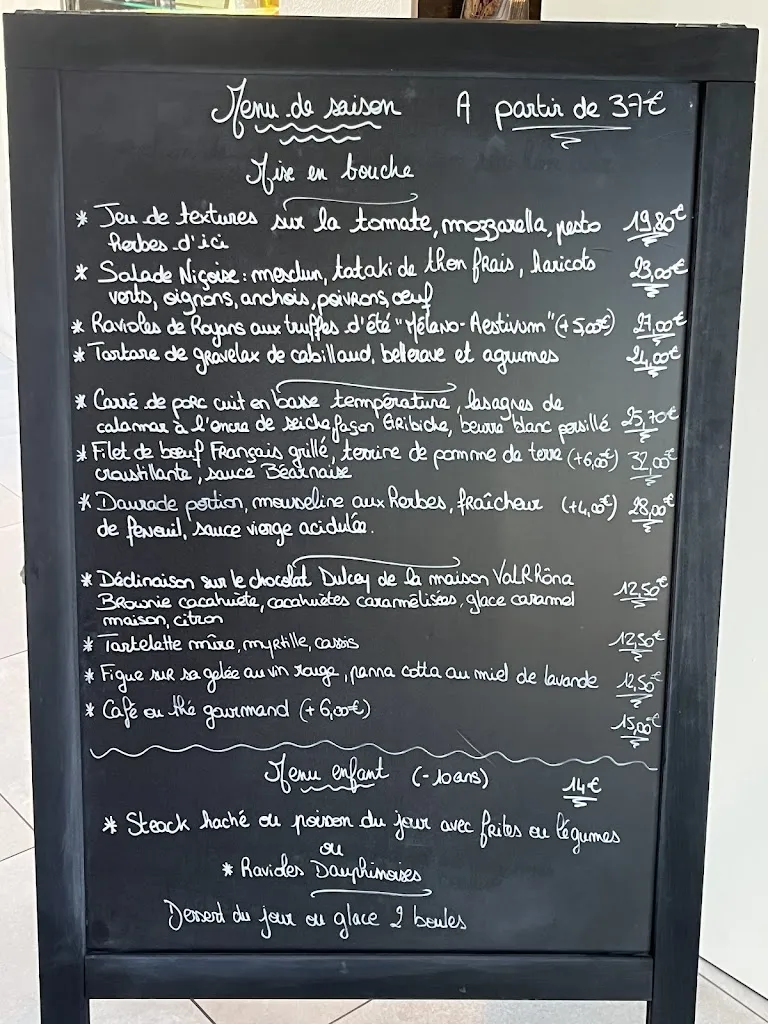 Menu de saison A partir de 37€
Mise en bouche
* Jeu de textures sur la tomate, mozzarella, pesto 19,80€
herbes d'ici
* Salade Niçoise : mesclun, tataki de thon frais, haricots 23,00€
verts, oignons, anchois, poivrons, oeuf
* Ravioles de Royans aux truffes d'été "Mélano-Aestivum" (+5,00€) 27,00€
* Tartare de gravelax de cabillaud, betterave et agrumes 24,00€
* Carré de porc cuit en basse température, lasagnes de
calamar à l'encre de seiche façon Gribiche, beurre blanc persillé 25,70€
* Filet de bœuf Français grillé, terrine de pomme de terre (+6,00€) 32,00€
croustillante, sauce Béarnaise
* Daurade portion, mousseline aux herbes, fraîcheur (+4,00€) 28,00€
de fenouil, sauce vierge acidulée.
* Déclinaison sur le chocolat Dulcey de la maison ValRhôna 12,50€
Brownie cacahuète, cacahuètes caramélisées, glace caramel
maison, citron
* Tartelette mûre, myrtille, cassis 12,50€
* Figue sur sa gelée au vin rouge, panna cotta au miel de lavande 12,50€
* Café ou thé gourmand (+6,00€) 15,00€
Menu enfant (-10ans) 14€
* Steack haché ou poisson du jour avec frites ou légumes
ou
* Ravioles Dauphinoises
Dessert du jour ou glace 2 boules